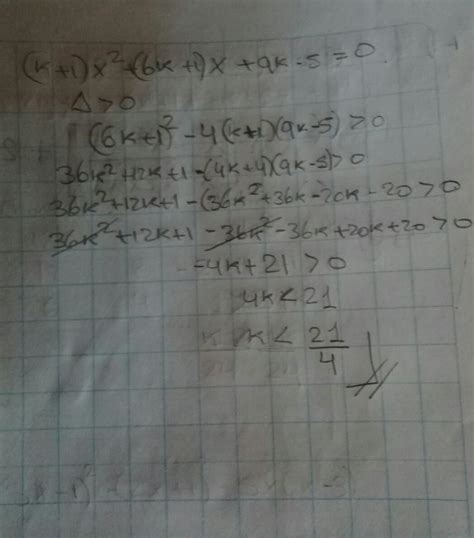 (k+1)x²+(6k+1)x + 9k-5=0.
Δ>0
(6k+1)²-4(k+1)(9k-5)>0
36k²+12k+1-(4k+4)(9k-5)>0
36k²+12k+1-(36k²+36k-20k-20>0
36k²+12k+1-36k²-36k+20k+20>0
-4k+21>0
4k<21
k<21/4